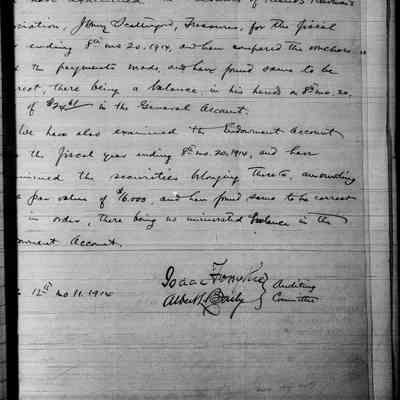 have examined the accounts of Friends
ciation, J Henry Scattergood, Treasurer, for the fiscal
ending 8th mo 20, 1914, and have compared the vouchers
the payments made, and have found same to be
rrect, there being a balance, in his hands on 8th mo. 20,
of in the General Account.
We have also examined the Endowment Account
the fiscal year ending 8th mo. 20, 1914, and have
mined the securities belonging thereto, amounting
par value of $6,000, and have found same to be correct
in order, there being no uninvested balance in the
owment Account.
12th mo 11. 1914
Isaac
Albert L Baily
Auditing
Committee